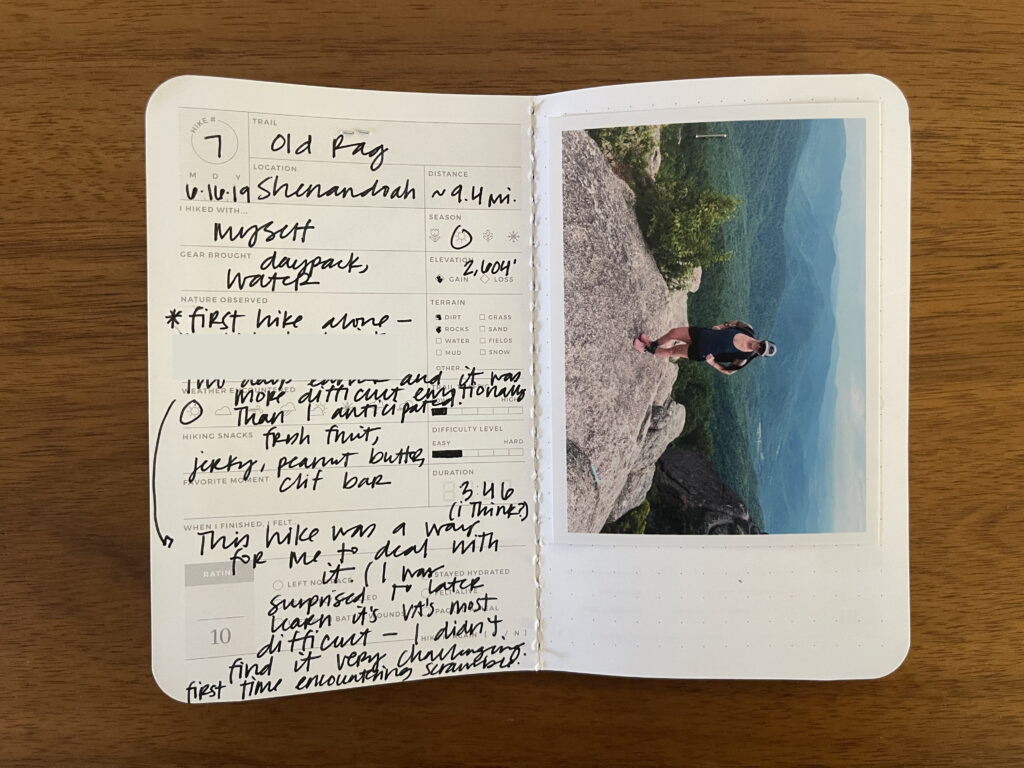 HIKE #
7
TRAIL
Old Rag
M D Y
6.16.19
LOCATION
Shenandoah
DISTANCE
~9.4 mi.
I HIKED WITH...
myself
SEASON
GEAR BROUGHT
daypack,
water
ELEVATION
2,604'
GAIN LOSS
NATURE OBSERVED
*first hike alone –
TERRAIN
DIRT GRASS
ROCKS SAND
WATER FIELDS
MUD SNOW
OTHER
and it was
WEATHER ENCOUNTERED
more difficult emotionally
than I anticipated.
HIGH
HIKING SNACKS
fresh fruit,
jerky, peanut butter,
clif bar
DIFFICULTY LEVEL
EASY HARD
FAVORITE MOMENT
DURATION
3:46
(i think?)
WHEN I FINISHED, I FELT
This hike was a way
for me to deal with
it (I was
surprised to later
learn it's VA's most
difficult – I didn't
find it very challenging.
first time encountering scrambles.
RATING
10
LEFT NO TRACE
STAYED HYDRATED
FELT ALIVE